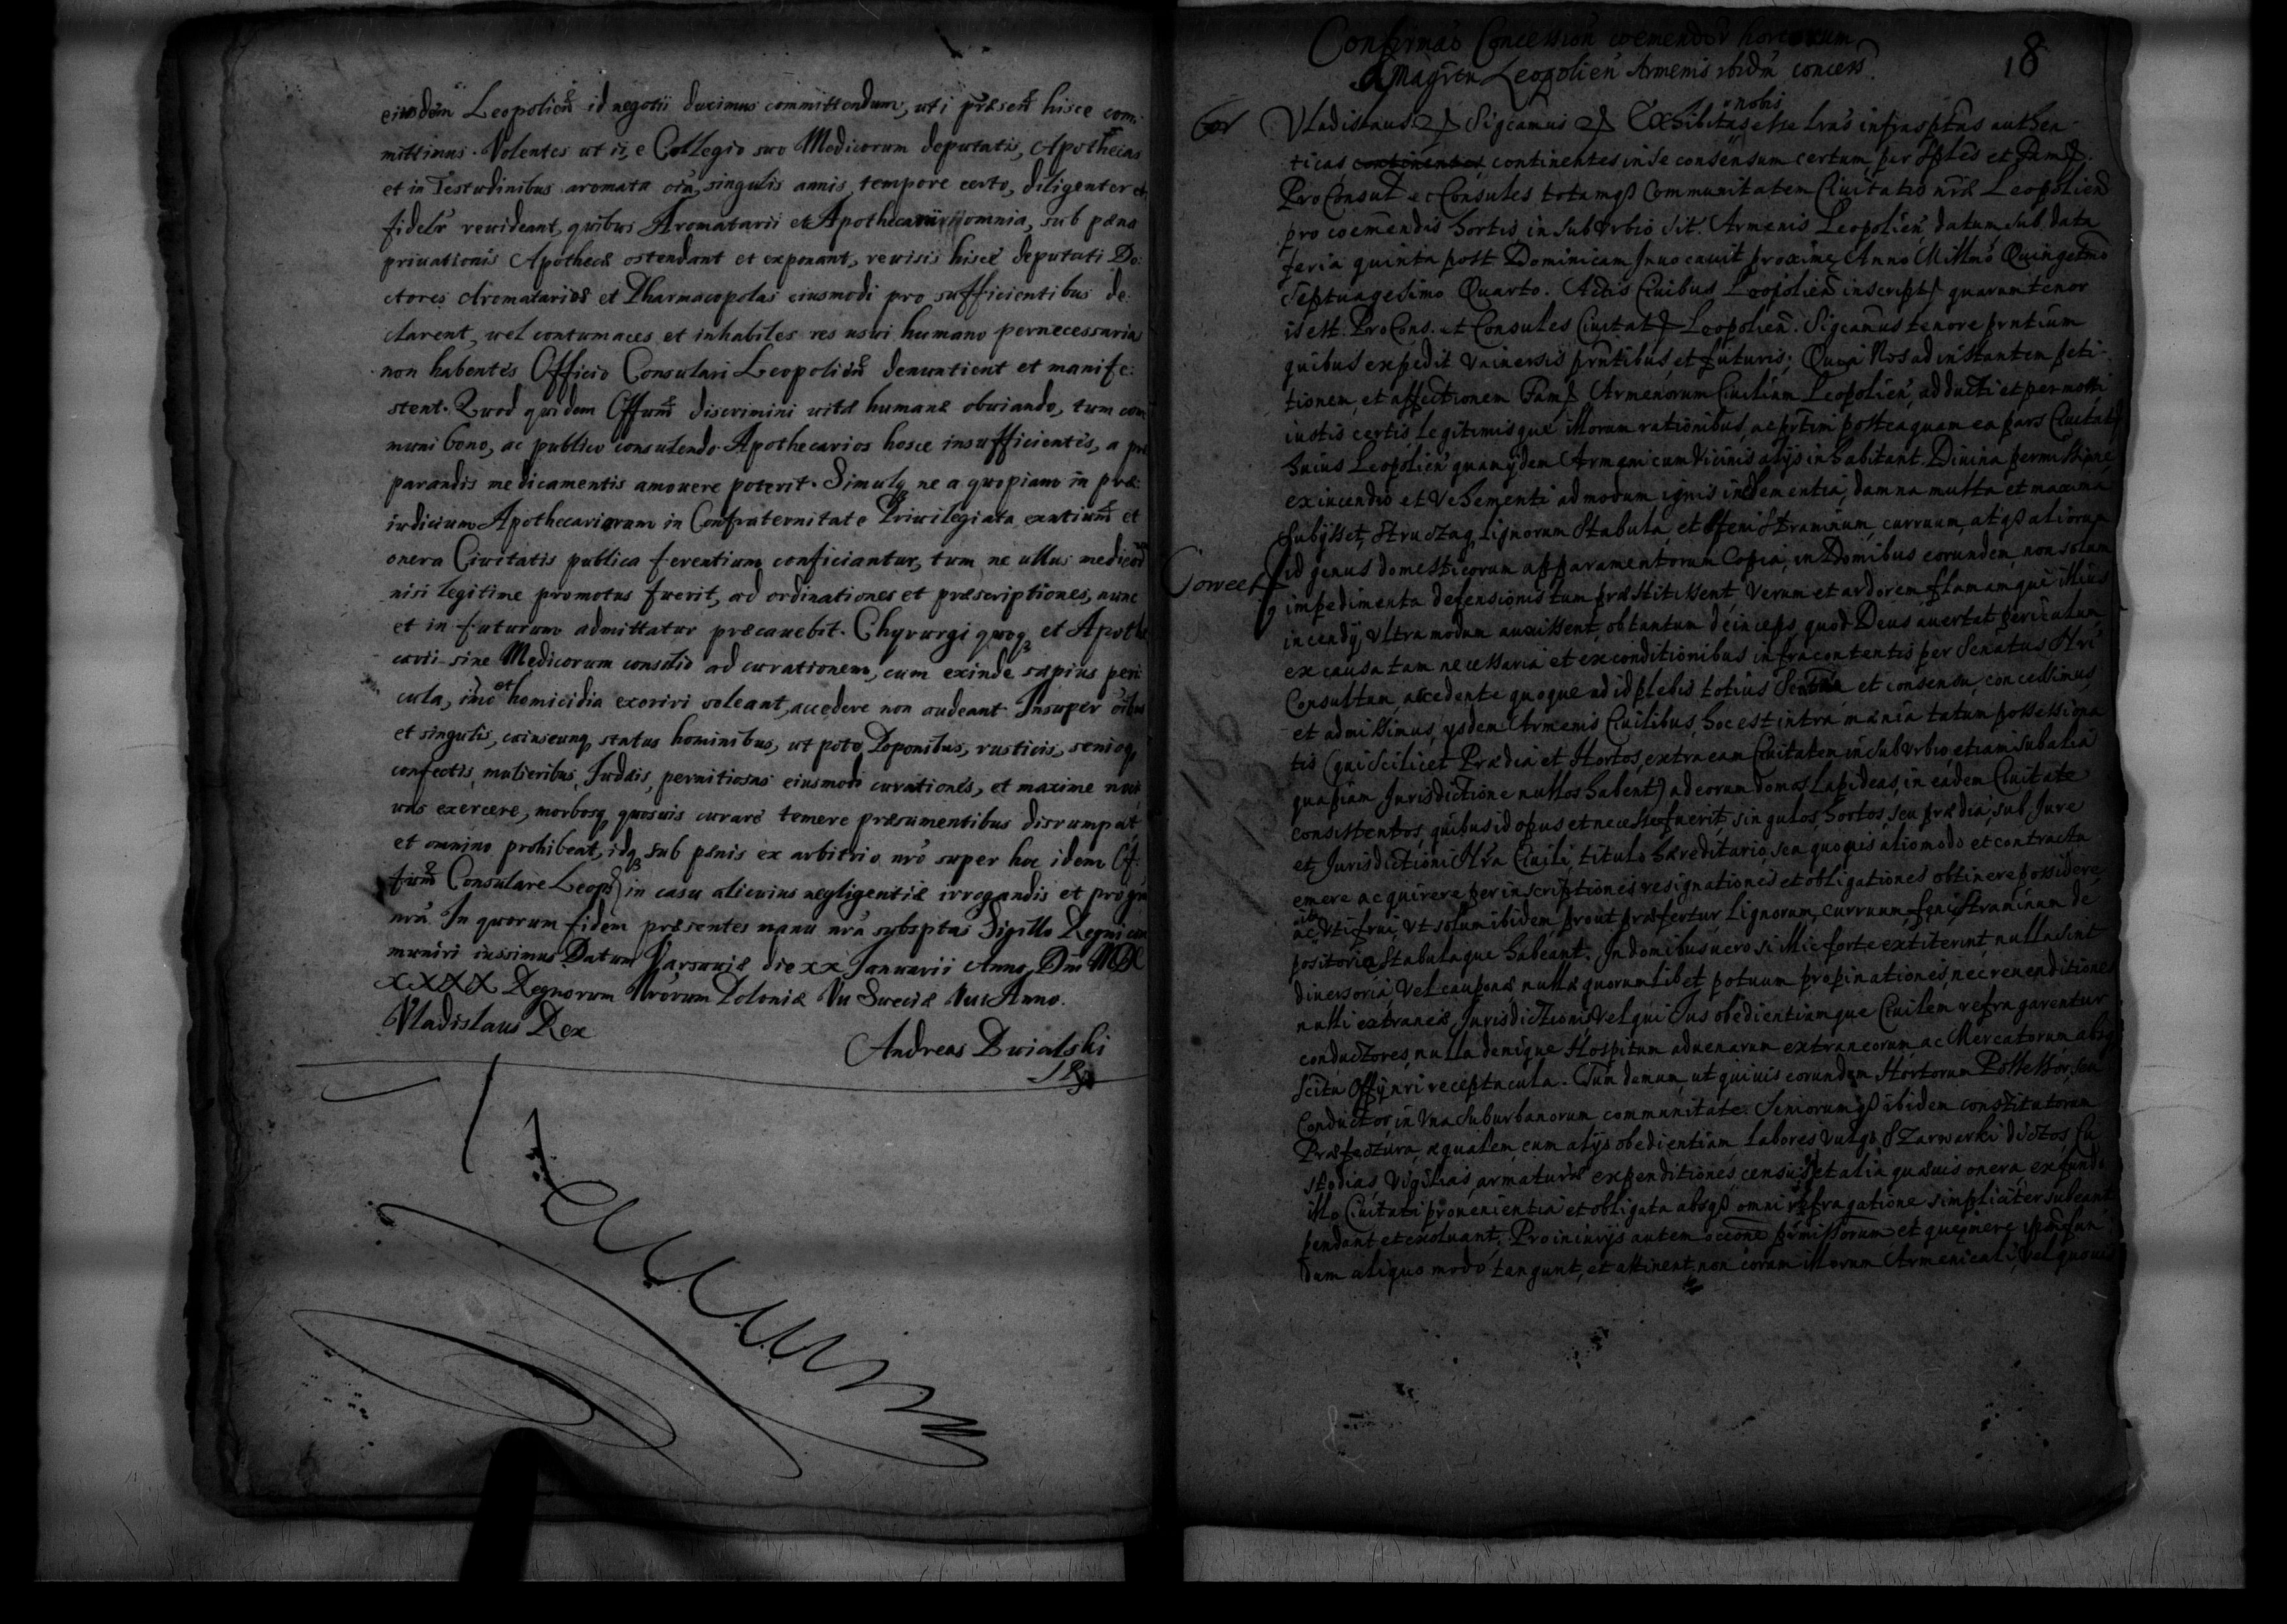 eiusdem Leopolien̄ id negotii duximus committendum, uti p̄raesen̄ hisce com:
mittimus. Volentes ut ii, e Collegio suo Medicorum deputatis, Apothecas
et in Testudinibus aromata oīa, singulis annis, tempore certo, diligenter et
fidelr̄ revideant, quibus Aromatarii et Apothecarii omnia, sub pæna
privationis Apothecæ ostendant et exponant, revisis hisce deputati Do:
ctores Aromatarios et Pharmacopolas eiusmodi pro sufficientibus de:
clarent, vel contumaces et inhabiles res usui humano pernecessaria
non habentes Officio Consulari Leopolien̄ denuntient et manife:
stent. Quod quidem Offium̄ discrimini vitæ humanæ obviando, tum com
muni bono, ac publico consulendo Apothecarios hosce insufficientes, a præ
parandis medicamentis amovere poterit. Simulq ne a quopiam in præ:
iudicium Apothecariorum in Confraternitate Privilegiata exntium̄ et
onera Civitatis publica ferentium conficiantur, tum ne ullus medicus
nisi legitime promotus fuerit, ad ordinationes et præscriptiones, nunc
et in futurum admittatur præcavebit. Chyrurgi quoq et Apothe
carii sine Medicorum consilio ad curationem, cum exinde sæpius peri
cula, imo et homicidia exoriri soleant, accedere non audeant. Insuper oībus
et singulis, cuiuscunq status hominibus, ut puta Poponibus, rusticis, senioq
confectis, mulieribus, Judæis, pernitiosas eiusmodi curationes, et maxime no
vas exercere, morbosq quosvis curare temere præsumentibus disrumpat
et omnino prohibeat, idq sub pænis ex arbitrio nrō super hoc idem Of
fium̄ Consulare Leopo) in casu alicuius negligentiæ irrogandis et pro gra
nrā. In quorum fidem præsentes manu nrā subsptas Sigillo Regni com
muniri iussimus. Datum Varsaviæ die xx Januarii Anno Dni MDC
XXXX Regnorum Nrorum Poloniæ VII Sueciæ VIII Anno.
Vladislaus Rex
Andreas
Confirmaō Concession̄ coemendor̄ hortorum
a Magr̄tu Leopolien̄ Armenis ibidm̄ concess.
18
Vladislaus Sigcamus Exhibitas nobis esse lrās infrasptas authen-
ticas continentes continentes in se consensum certum per Sples et Fam
ProConsul et Consules totamq Communitatem Civitatis nrǣ Leopolien̄
pro coemendis hortis in subvrbio sit. Armenis Leopolien̄ datum sub data
feria quinta post Dominicam Invocavit proxime Anno Millmō Quingetmō
Septuagesimo Quarto. Actis Civibus Leopolien̄ inscript quarum tenor
is est. ProCons. et Consules Civitat Leopolien̄. Sigcamus tenore prntium
quibus expedit Vniversis prntibus et futuris; Quia Nos ad instantem peti-
tionem, et affectionem Fam Armenorum Civilium Leopolien̄, adducti et permoti
iustis certis legitimisque illorum rationibus, ac prtim̄ posteaquam ea pars Civitat
huius Leopolien̄ quam ijdem Armeni cum Vicinis alijs inhabitant. Divina permissione
ex incendio et Vehementi admodum ignis inclementia, damna multa et maxima
subijsset, structaq lignorum stabula, et feni straminum, curruum, atq aliorum
id genus domesticorum apparamentorum Copia, in Domibus eorundem, non solum
impedimenta defensionis tum præstitissent, Verum et ardorem flamamque illius
incendij, Vltra modum auxissent, ob tantum deinceps, quod Deus avertat periculum,
ex causa tam necessaria et ex conditionibus infracontentis per Senatus Nri
Consultum, accedente quoque ad id plebis totius et consensu, concessimus,
et admissimus, ysdem Armenis Civilibus, hoc est intra mænia tatum possessiona
tis (qui scilicet Prædia et Hortos, extra eam Civitatem in subvrbio, etiam sub alia
quapiam Jurisdictione nullos habent) ad eorum domos Lapideas, in eadem Civitate
consistentes, quibus id opus et necesse fuerit, singulos, hortos, seu prædia, sub Jure
et Jurisdictioni Nrā Civili, titulo hæreditario, seu quovis alio modo et contractu
emere acquirere per inscriptiones resignationes et obligationes obtinere possidere
ac Vtifrui, Vt solum ibidem, prout præfertur Lignorum, curruum, feni, straminum de
positoria stabulaque habeant. In domibus vero si illic forte extiterint, nulla sint
diversoria, Vel cauponæ, nullæ quorumlibet potuum propinationes, nec revenditiones
nulli extraneæ, Jurisdictionis Vel qui Jus obedientiamque Civilem refragarentur
conductores, nulla denique Hospitum advenarum extraneorum, ac Mercatorum absq
scitu Offij nri receptacula. Tum demum, ut quivis eorundem Hortorum Possessor, seu
Conductor, in Vna suburbanorum communitate. Seniorumq ibidem constitutorum
Præfectura, æqualem, cum alijs obedientiam Labores vulgo Szarwarki dictos, Cu
stodias Vigilias, armaturæ expenditiones, census et alia quævis onera, ex fundo
illo Civitati provenientia et obligata absq omni refragatione simpliciter subeant
pendant et exolvant. Pro iniurijs autem occōne pr̄missorum et que mere ipsum fun
dum aliquo modo tangunt, et attinent, non coram illorum Armenicali, Vel quovis